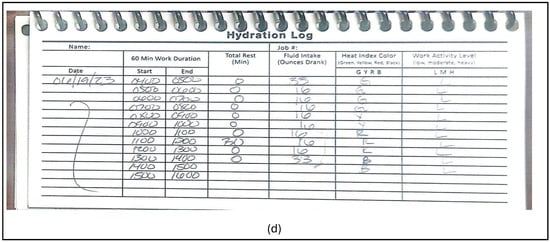 Hydration Log
Name: Job #:
Date 60 Min Work Duration Total Rest (Min) Fluid Intake (Ounces Drank) Heat Index Color (Green, Yellow, Red, Black) Work Activity Level (low, moderate, heavy)
Start End G Y R B L M H
06/19/23 0400 0500 0 33 G L
0500 0600 0 16 G L
0600 0700 0 16 G L
0700 0800 0 16 L
0800 0900 0 16 Y L
0900 1000 0 16 Y L
1000 1100 0 16 R L
1100 1200 30 16 R L
1200 1300 0 16 L
1300 1400 0 33 B L
1400 1500 B
1500 1600
(d)